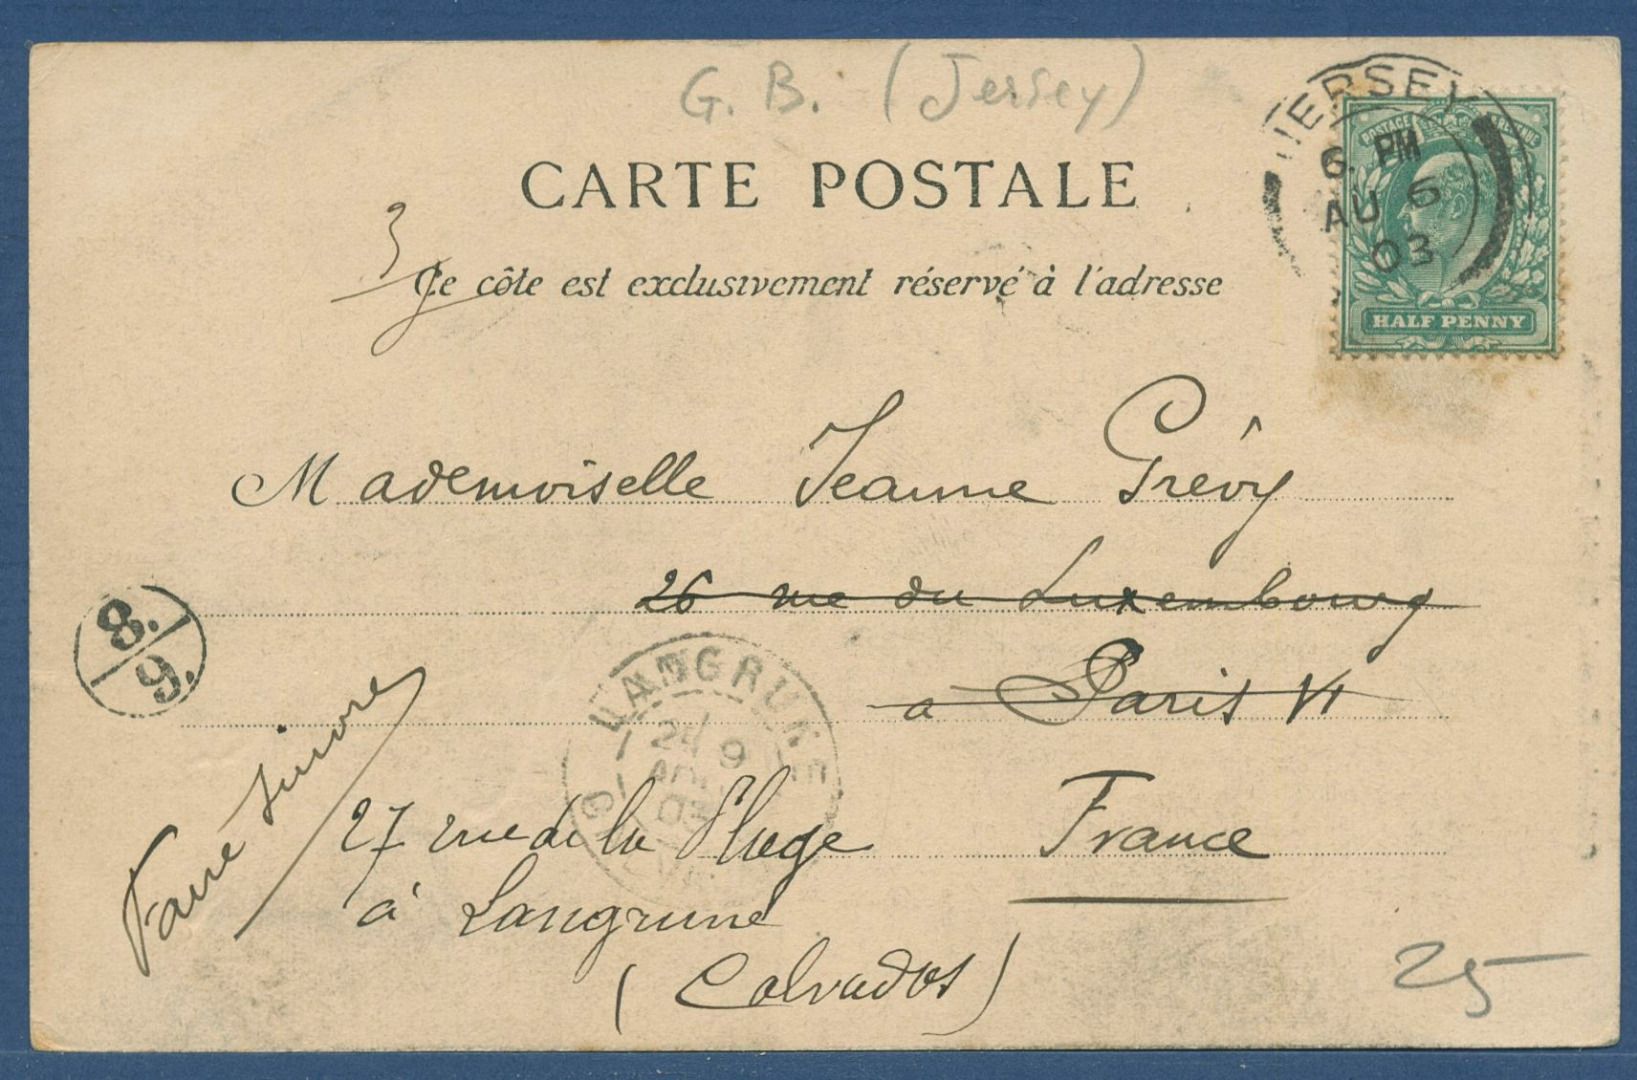 G. B. (Jersey)
JERSEY
6. PM
AU 6
03
POSTAGE REVENUE
HALF PENNY
CARTE POSTALE
3
Ce côte est exclusivement réservé à l'adresse
Mademoiselle Jeanne Grévy
26 rue du Luxembourg
à Paris VI
France
8.
9.
LANGRUNE
9
03
Faire suivre
27 rue de la Plage
à Langrune
(Calvados)
25